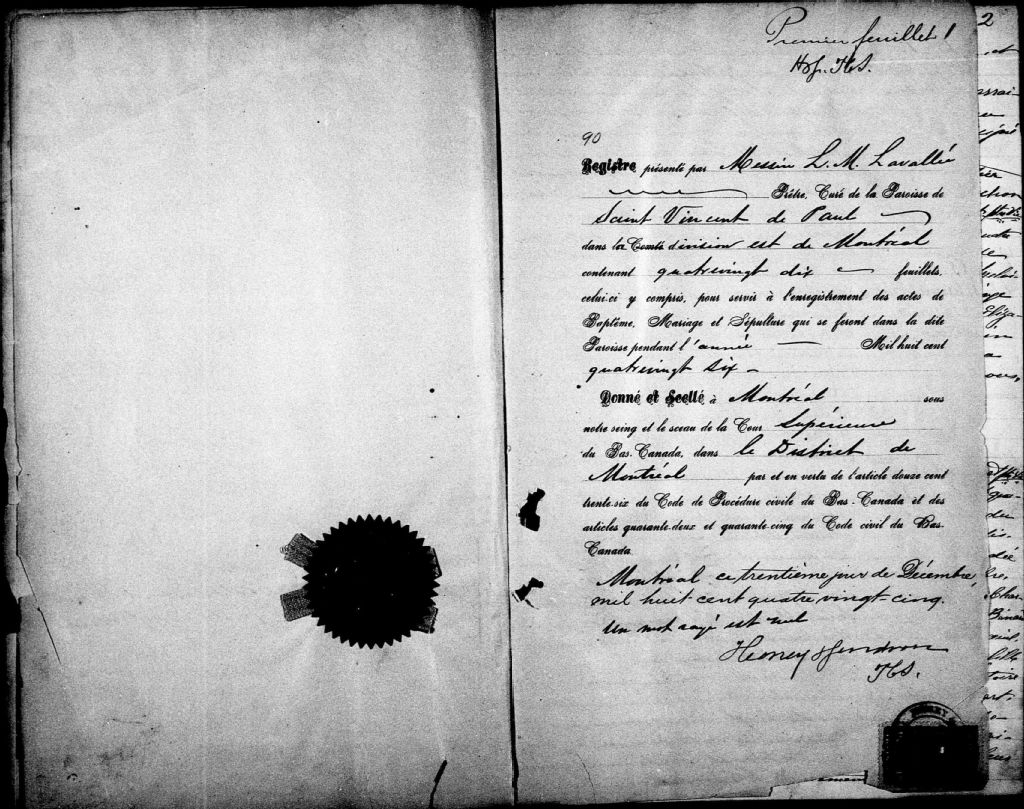 Premier feuillet 1
90
Registre présenté par Messire L. M. Lavallée
Prêtre, Curé de la Paroisse de
Saint Vincent de Paul
dans la Comté division est de Montréal
contenant quatrevingt dix feuillets,
celui-ci y compris, pour servir à l'enregistrement des actes de
Baptême, Mariage et Sépulture qui se feront dans la dite
Paroisse pendant l'année Mil huit cent
quatrevingt six
Donné et Scellé à Montréal sous
notre seing et le sceau de la Cour Supérieure
du Bas-Canada, dans le District de
Montréal par et en vertu de l'article douze cent
trente-six du Code de Procédure civile du Bas-Canada et des
articles quarante-deux et quarante-cinq du Code civil du Bas-
Canada
Montréal ce trentième jour de Décembre,
mil huit cent quatre vingt-cinq.
Un mot rayé est nul
2